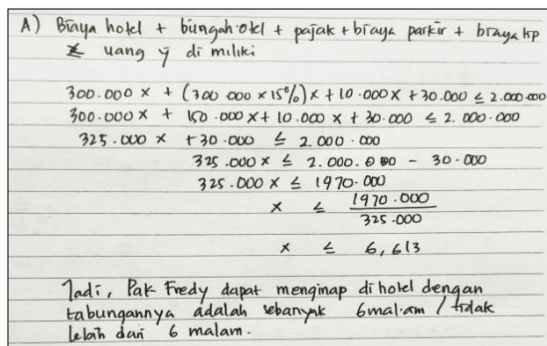 A) Biaya hotel + bungah otel + pajak + biaya parkir + biaya trp
≤ uang yg di miliki
300.000 x + (300 000 x 15%) x + 10.000 x + 30.000 ≤ 2.000.000
300.000 x + 150.000 x + 10.000 x + 30.000 ≤ 2.000.000
325.000 x + 30.000 ≤ 2.000.000
325.000 x ≤ 2.000.000 - 30.000
325.000 x ≤ 1970.000
x ≤ 1970.000 / 325.000
x ≤ 6,613
Jadi, Pak Fredy dapat menginap di hotel dengan
tabungannya adalah sebanyak 6 malam / tidak
lebih dari 6 malam.